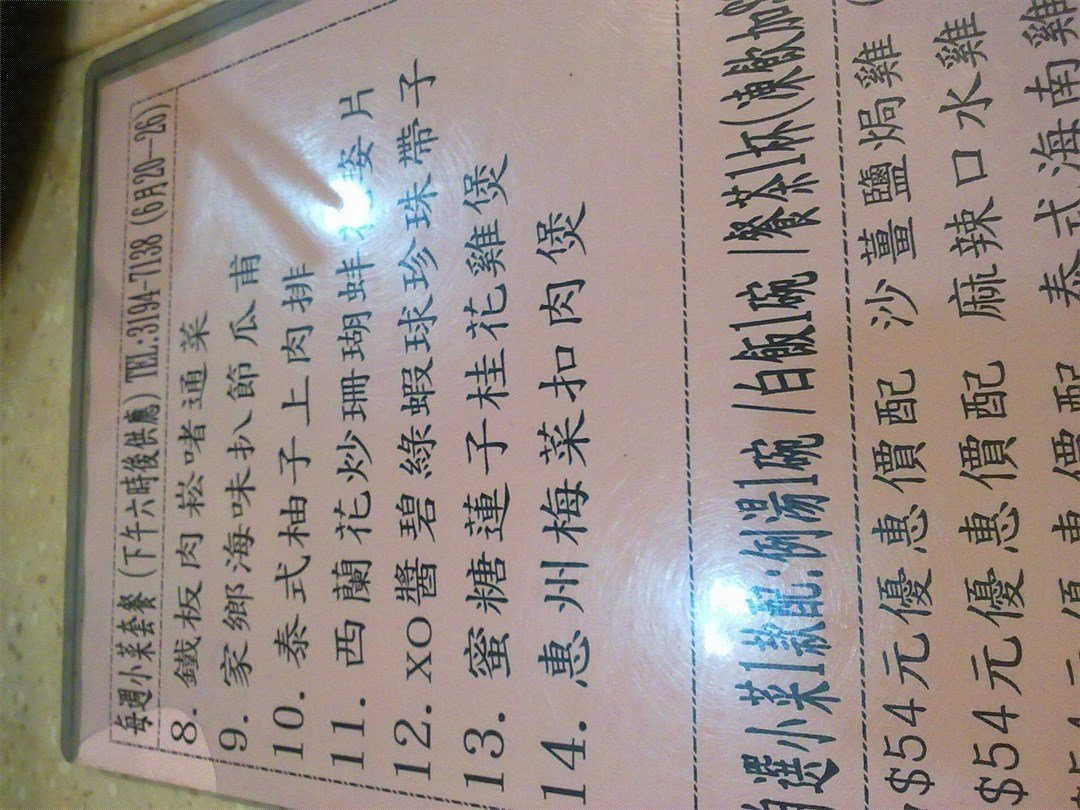 每週小菜套餐(下午六時後供應)TEL:3194-7138(6月20-26)
8. 鐵板肉崧啫通菜
9. 家鄉海味扒節瓜甫
10. 泰式柚子上肉排
11. 西蘭花炒珊瑚蚌 姿片
12. XO醬碧綠蝦球珍珠帶子
13. 蜜糖蓮子桂花雞煲
14. 惠州梅菜扣肉煲
自選小菜1款配:例湯1碗/白飯1碗/餐茶1杯(凍飲加$
$54元優惠價配 沙薑鹽焗雞
$54元優惠價配 麻辣口水雞
$54元優惠價配 泰式海南雞